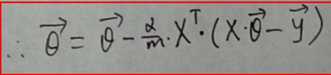 ∴ $\vec{\theta} = \vec{\theta} - \frac{\alpha}{m} \cdot X^{T} \cdot (X \cdot \vec{\theta} - \vec{y})$